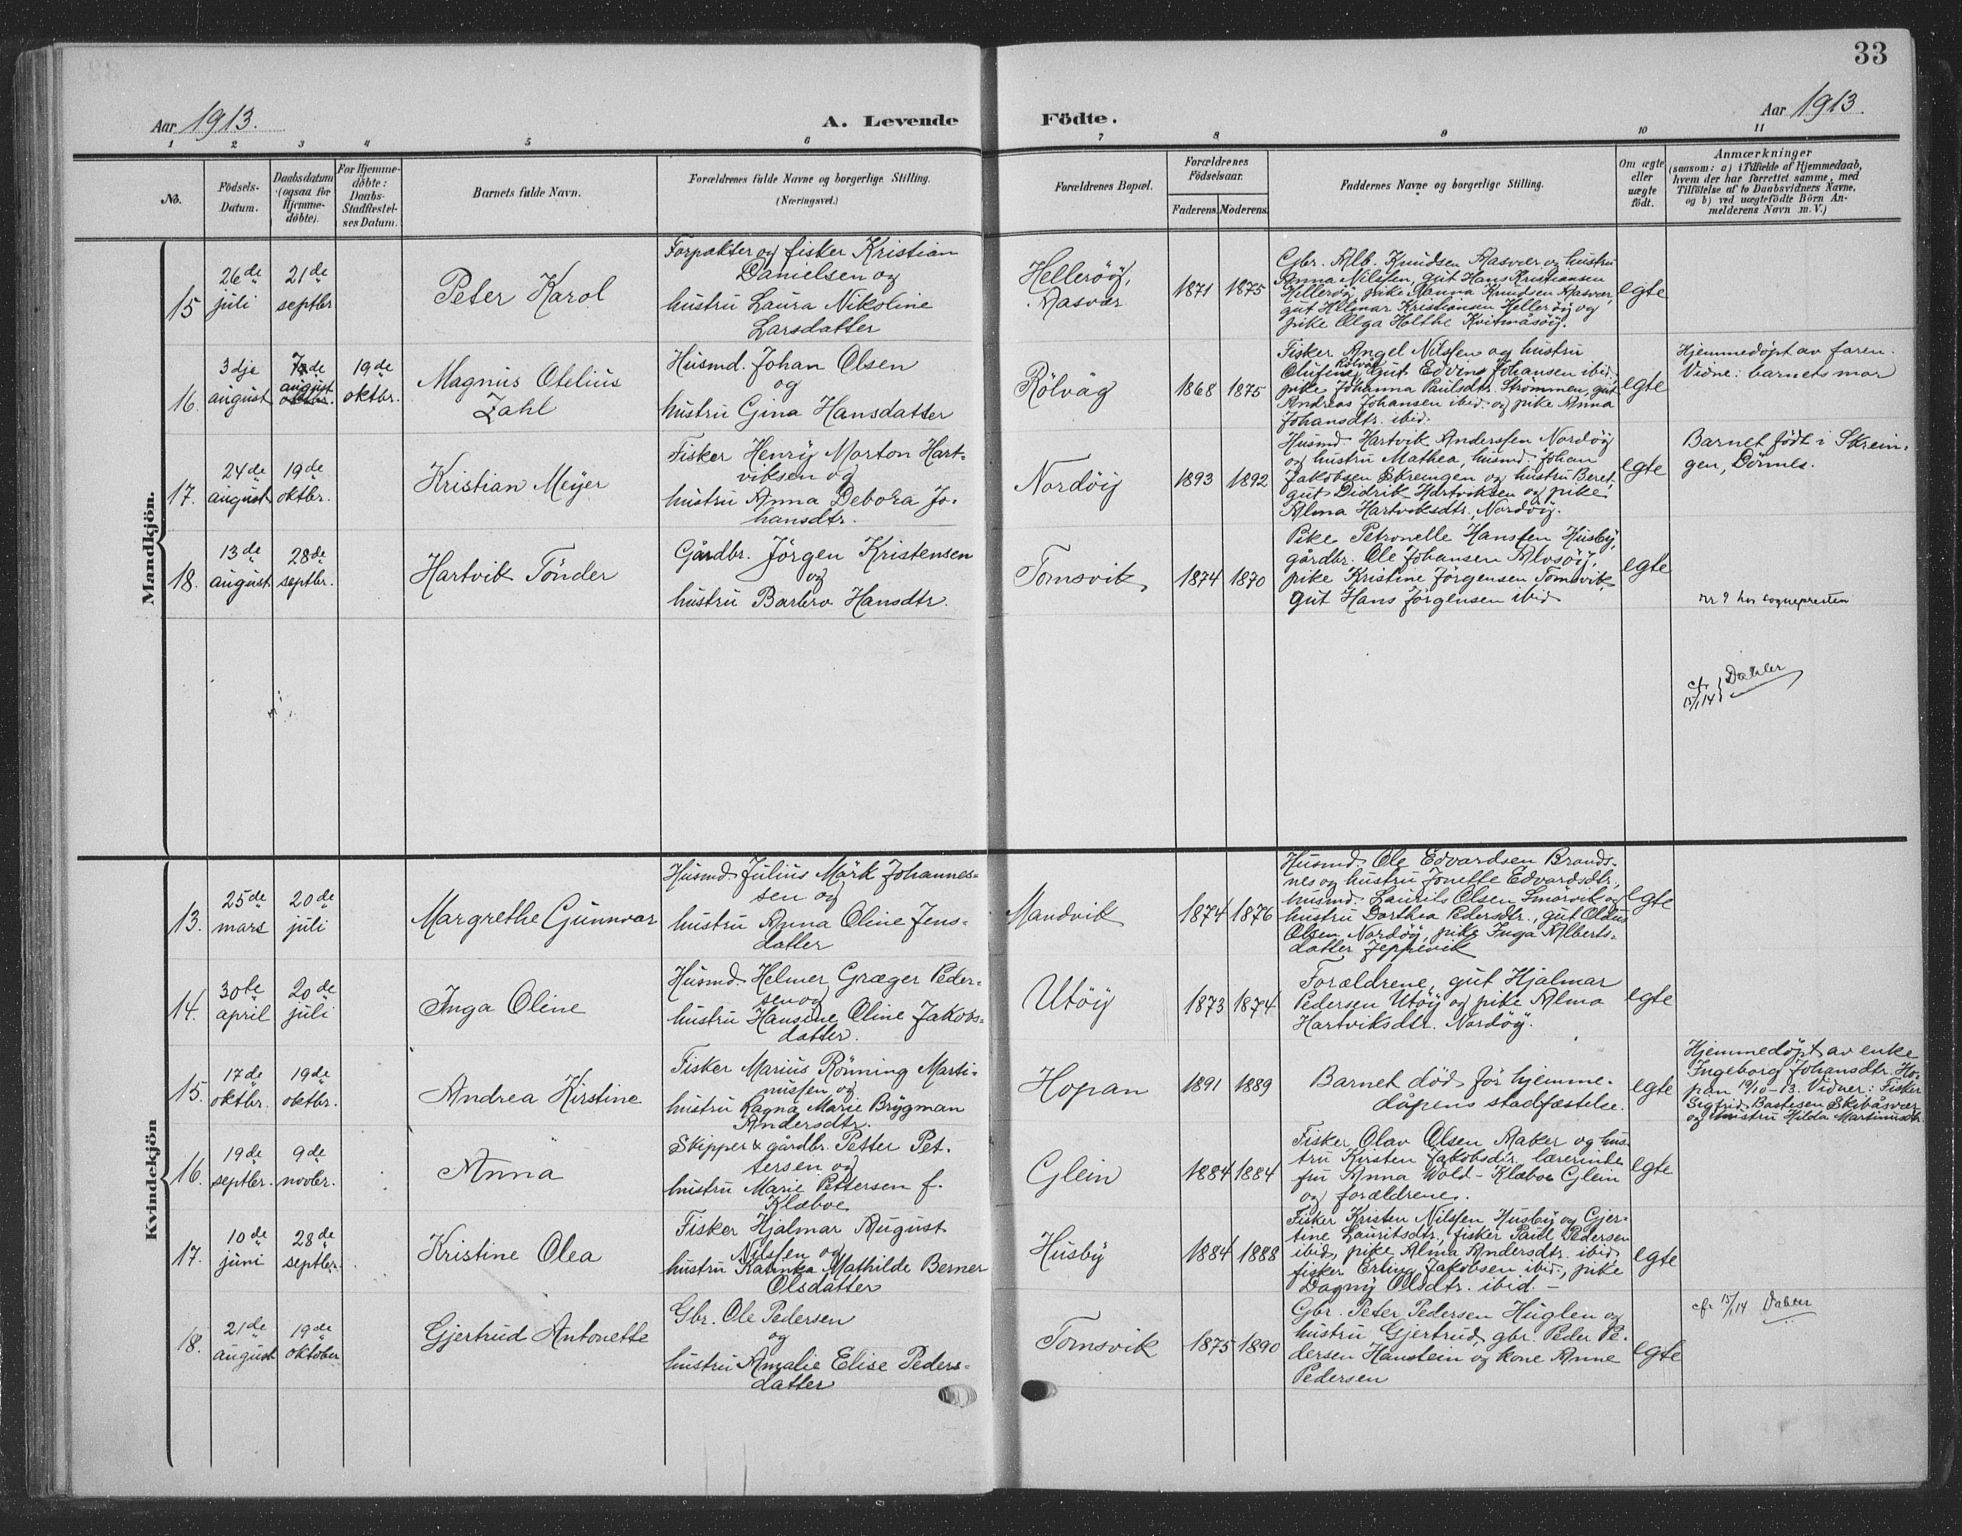 33
Aar 1913.
A. Levende
Födte.
Aar 1913.
1 2 3 4 5 6 7 8 9 10 11
No.
Födsels-
Datum.
Daabsdatum
(ogsaa for
Hjemme-
döbte).
For Hjemme-
döbte:
Daabs-
Stadfæstel-
ses Datum.
Barnets fulde Navn.
Forældrenes fulde Navne og borgerlige Stilling.
(Næringsvei.)
Forældrenes Bopæl.
Forældrenes
Födselsaar.
Faderens.
Moderens.
Faddernes Navne og borgerlige Stilling.
Om ægte
eller
uægte
födt.
Anmærkninger
(saasom: a) i Tilfælde af Hjemmedaab,
hvem der har forrettet samme, med
Tilföielse af to Daabsvidners Navne,
og b) ved uægtefödte Börn An-
melderens Navn m. V.)
Mandkjön.
15
26de
juli
21de
septbr
Peter Karol
Forpakter og fisker Kristian
Danielsen og
hustru Laura Nikoline
Larsdatter
Hellerøy,
Aasvær
1871
1875
Gbr. Alb. Knudsen Aasvær og hustru
Anna Nilsen, gut Hans Kristiansen
Hellerøy, pike Nanna Knudsen Aasvær,
gut Helmar Kristiansen Hellerøy og
pike Olga Holthe Kvitmåsøy.
egte
16.
3dje
august
7de
august
oktbr.
19de
oktbr.
Magnus Otelius
Zahl
Husmd. Johan Olsen
og
hustru Gina Hansdatter
Rölvåg
1868
1875
Fisker Angel Nilsen og hustru
Olufine Rölvåg, gut Edvin Johansen ibid.
pike Johanna Paulsdtr. Strömmen, gut
Andreas Johansen ibid. og pike Anna
Johansdtr. ibid.
egte
Hjemmedöpt av faren.
Vidne: barnets mor
17.
24de
august
19de
oktbr.
Kristian Meyer
Fisker Henry Morton Hart-
viksen og
hustru Anna Debora Jo-
hansdtr.
Nordöy
1893
1892
Husmd. Hartvik Anderssen Nordöy
og hustru Mathea, husmd. Johan
Jakobsen Skreingen og hustru Beret,
gut Didrik Hartviksen og pike
Alma Hartviksdtr, Nordöy.
egte
Barnet födt i Skrein-
gen, Dönnes.
18.
13de
august.
28de
septbr.
Hartvik Tönder
Gårdbr. Jörgen Kristensen
og
hustru Barbro Hansdtr.
Tomsvik
1874
1870
Pike Petronelle Hanssen Husby,
gårdbr. Ole Johansen Alvsöy,
pike Kristine Jörgensen Tomsvik,
gut Hans Jörgensen ibid
egte
nr 9 hos sognepresten
cfr
15/1 14
Dahler
Kvindekjön
13.
25de
mars
20de
juli
Margrethe Gunnvar
Husmd. Julius Mörk Johannes-
sen og
hustru Anna Oline Jens-
datter
Mandvik
1874
1876
Husmd. Ole Edvardsen Brands-
nes og hustru Jonette Edvardsdtr.,
husmd. Laurits Olsen Smörvik og
hustru Dorthea Pedersdtr., gut Olaus
Olsen Nordöy, pike Inga Alberts-
datter Jeppevik
egte
14.
30te
april
20de
juli
Inga Oline
Husmd. Helmer Græger Peder-
sen og
hustru Hansine Oline Jakobs-
datter.
Utöy
1873
1874
Forældrene, gut Hjalmar
Pedersen Utöy og pike Alma
Hartviksdtr. Nordöy.
egte
15.
17de
oktbr.
19de
oktbr.
Andrea Kirstine
Fisker Marius Rönning Marti-
nussen og
hustru Ragna Marie Brygman
Andersdtr.
Hopan
1891
1889
Barnet död för hjemme-
dåpens stadfæstelse.
egte
Hjemmedöpt av enke
Ingeborg Johansdtr. Ho-
pan 19/10-13. Vidner: Fisker
Sigfrid Bastesen Skibåsvær
og hustru Hilda Martinusdtr.
16.
19de
septbr.
9de
novbr.
Anna
Skipper & gårdbr. Petter Pet-
tersen og
hustru Marie Pettersen f.
Klæboe
Glein
1884
1884
Fisker Olav Olsen Aaker og hus-
tru Kirsten Jakobsdtr. lærerinde
fru Anna Wold-Klæboe Glein
og forældrene.
egte
17.
10de
juni
28de
septbr.
Kristine Olea
Fisker Hjalmar August
Nilssen og
hustru Katinka Mathilde Berner
Olsdatter
Husby
1884
1888
Fisker Kristen Nilssen Husby og Gjer-
tine Lauritsdtr, fisker Paul Pedersen
ibid, pike Alma Andersdtr. ibid
fisker Erling Jakobsen ibid, pike
Dagny Olsdtr. ibid.
egte
18.
21de
august
19de
oktober
Gjertrud Antonette
Gbr. Ole Pedersen
og
hustru Amalie Elise Peders-
datter
Tomsvik
1875
1890
Gbr. Peter Pedersen Huglen og
hustru Gjertrud, gbr. Peder Pe-
dersen Hanstein og kone Anne
Pedersen
egte
cfr 15/1 14 Dahler